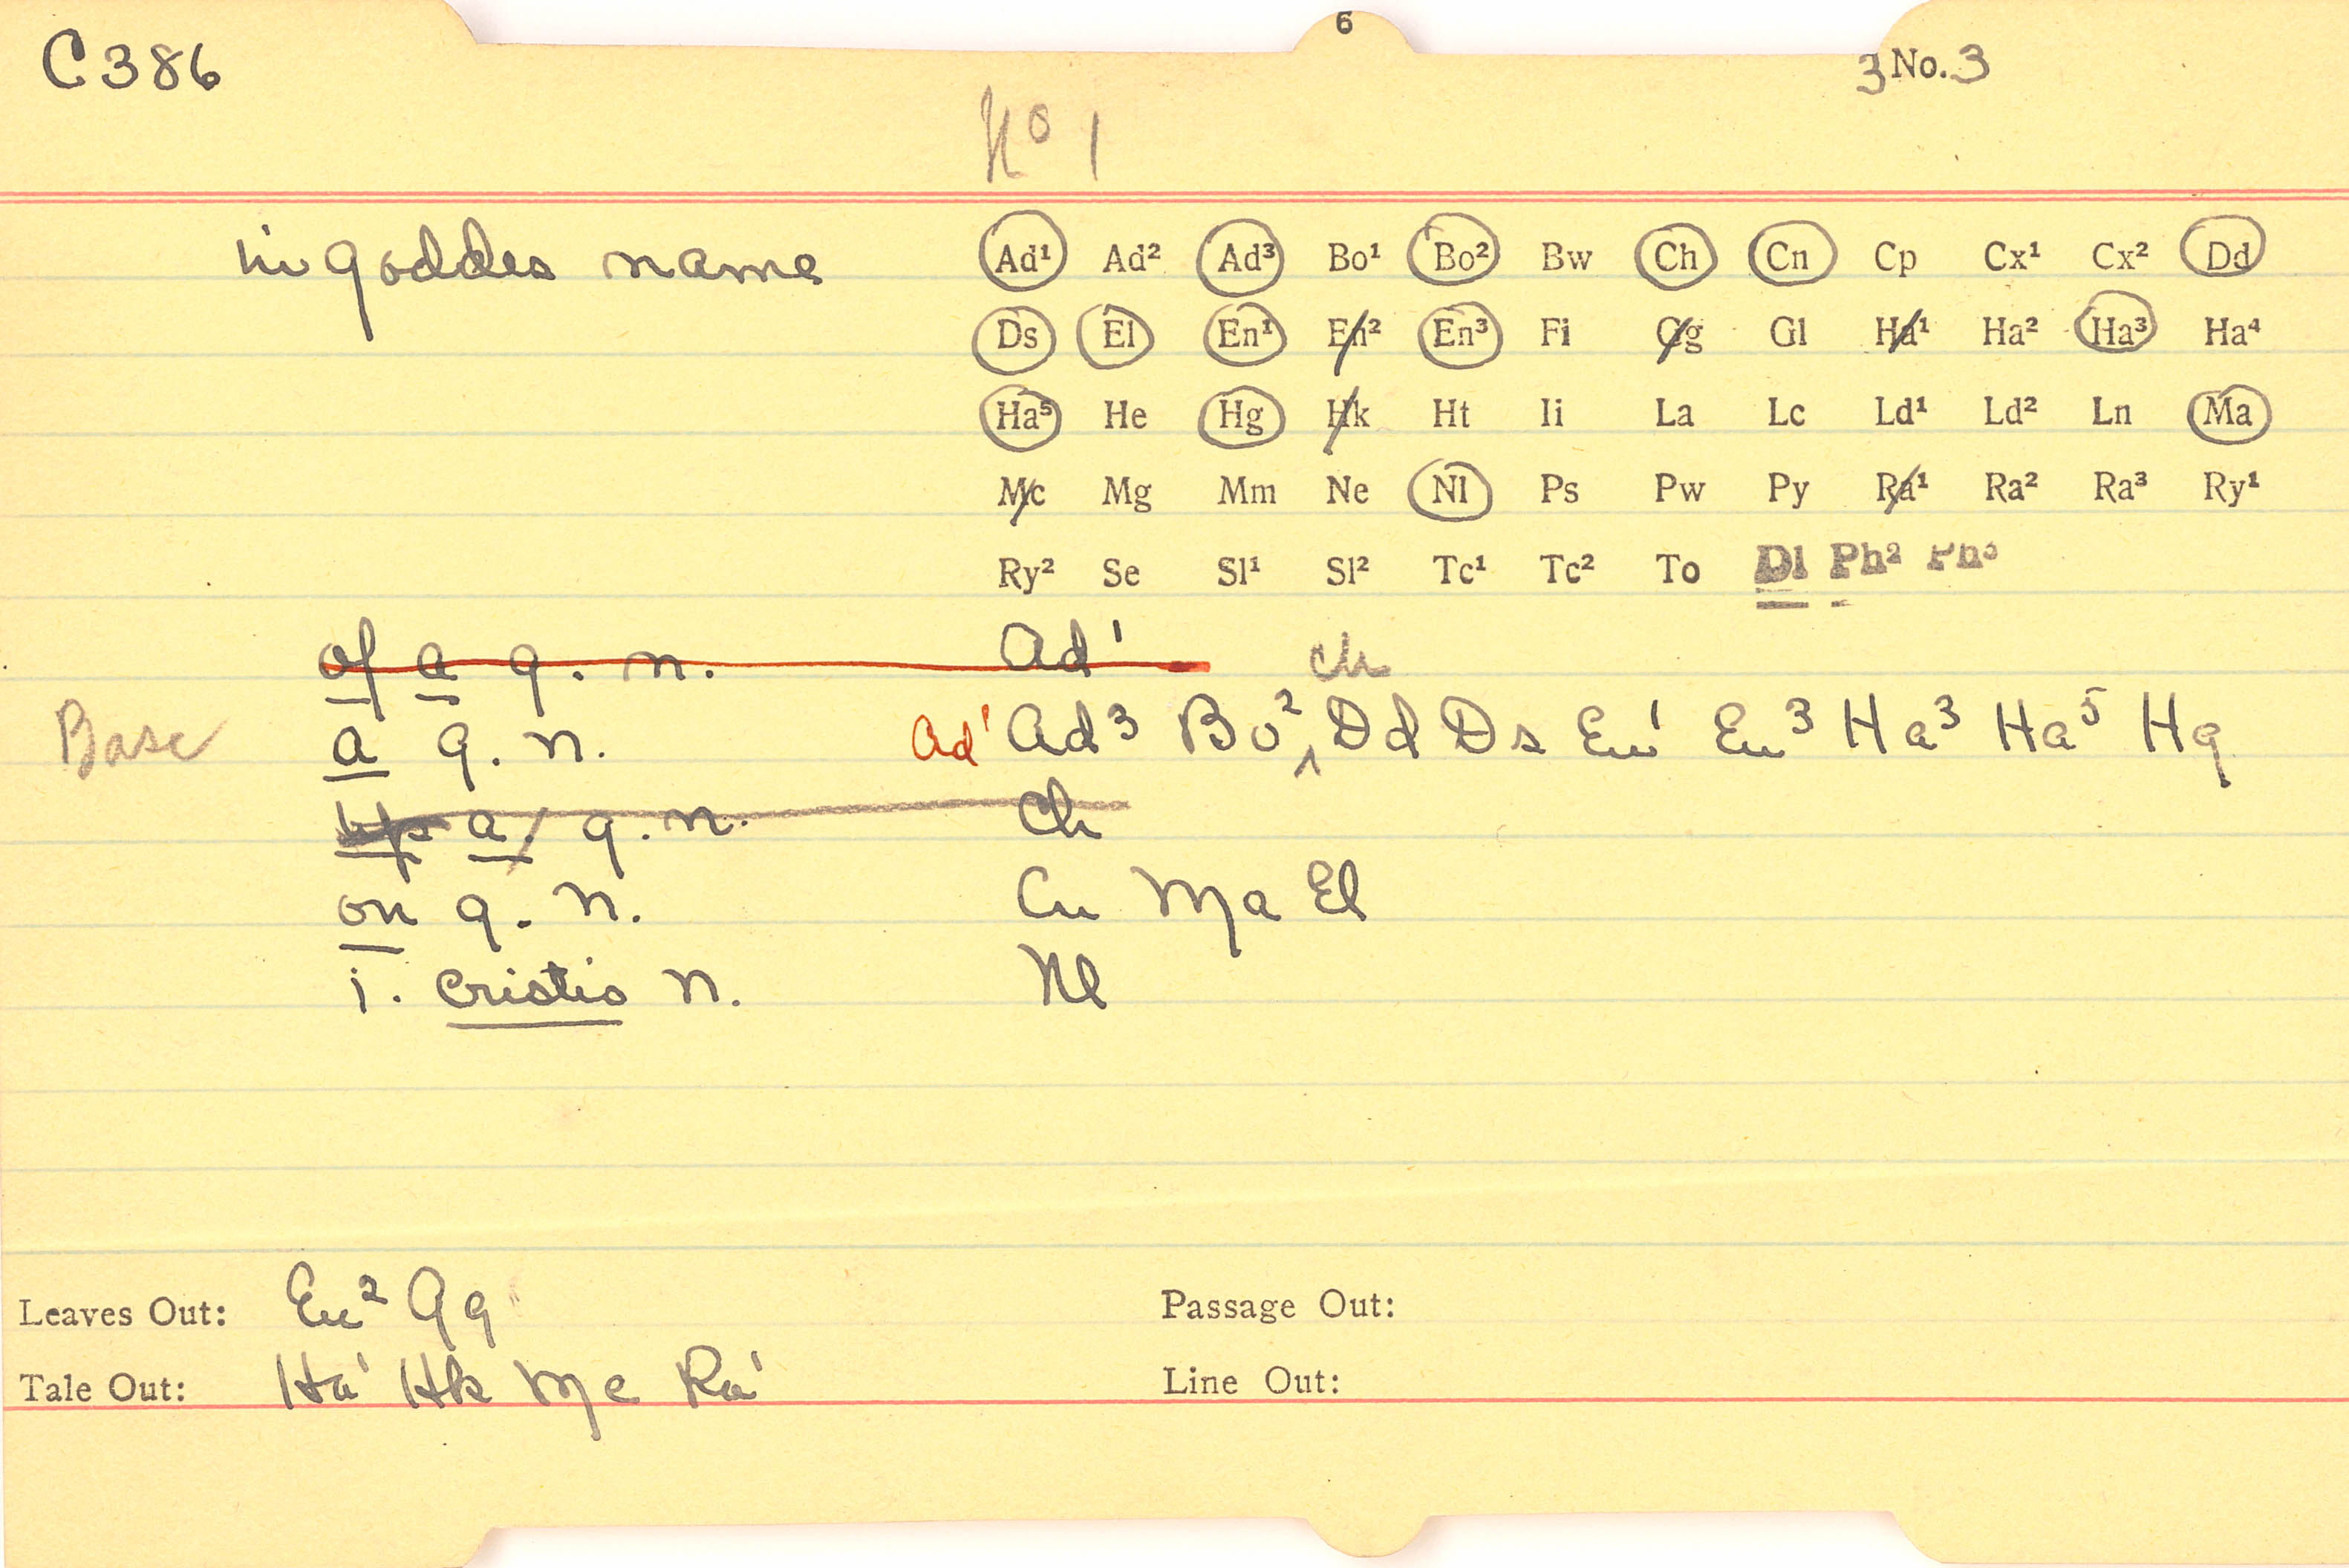 6
C386 3 No. 3
No 1
in goddes name
Ad¹ Ad² Ad³ Bo¹ Bo² Bw Ch Cn Cp Cx¹ Cx² Dd
Ds El En¹ En² En³ Fi Gg Gl Ha¹ Ha² Ha³ Ha⁴
Ha⁵ He Hg Hk Ht Ii La Lc Ld¹ Ld² Ln Ma
Mc Mg Mm Ne Nl Ps Pw Py Ra¹ Ra² Ra³ Ry¹
Ry² Se Sl¹ Sl² Tc¹ Tc² To Dl Ph² Ph³
of a g. n. Ad¹
Base a g. n. Ad¹ Ad³ Bo² Ch Dd Ds En¹ En³ Ha³ Ha⁵ Hg
a g. n. Ch
on g. n. Cn Ma El
i. cristis n. Nl
Leaves Out: En² Gg Passage Out:
Tale Out: Ha¹ Hk Mc Ra¹ Line Out: